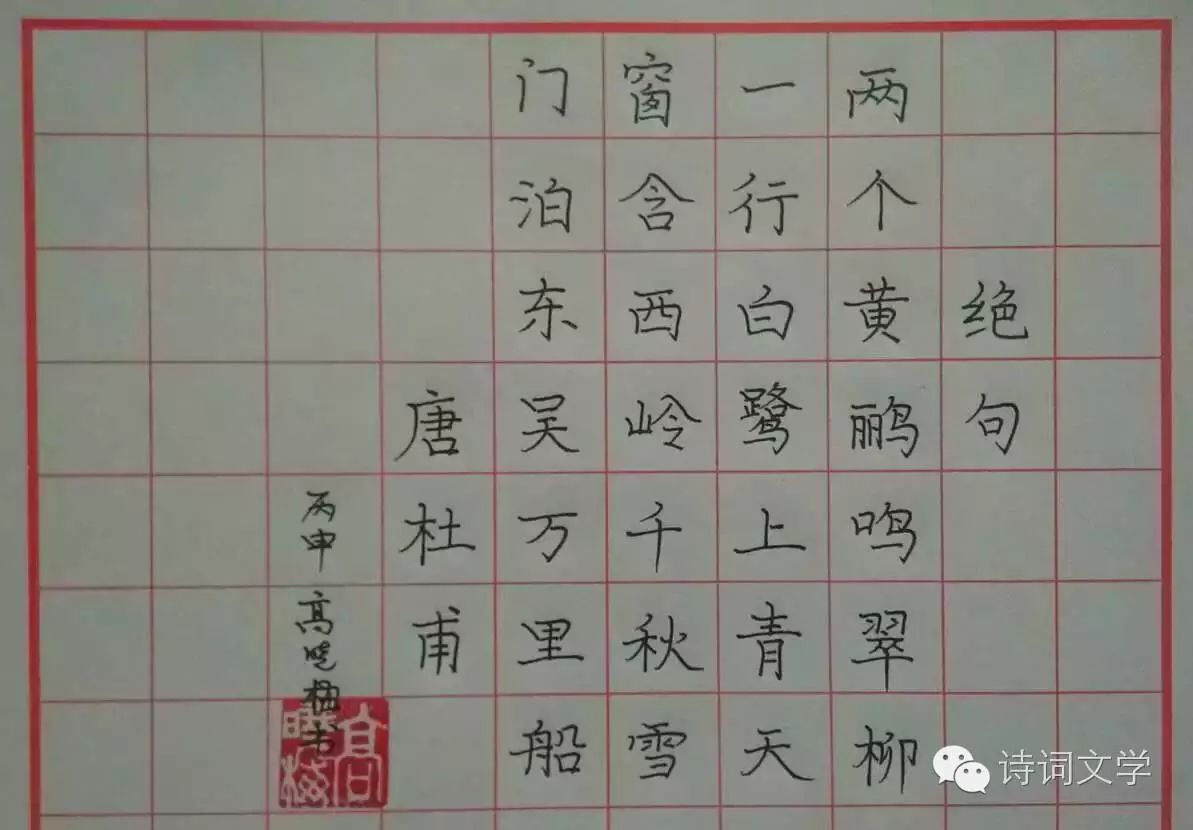 绝句
两个黄鹂鸣翠柳
一行白鹭上青天
窗含西岭千秋雪
门泊东吴万里船
唐杜甫
丙申 高晓梅书
高晓梅
诗词文学